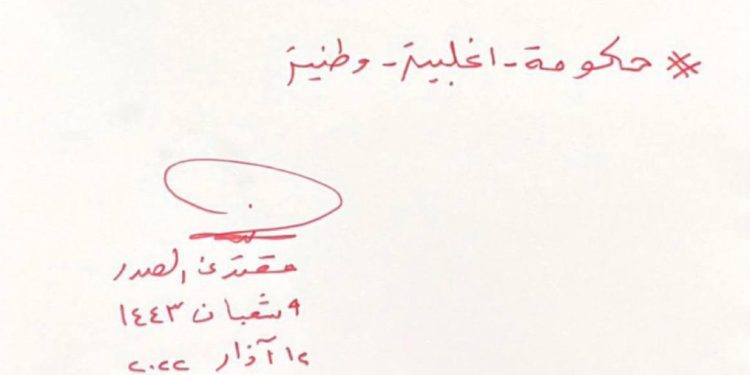 # حكومة - اغلبية - وطنية
مقتدى الصدر
٩ شعبان ١٤٤٣
١٢ آذار ٢٠٢٢